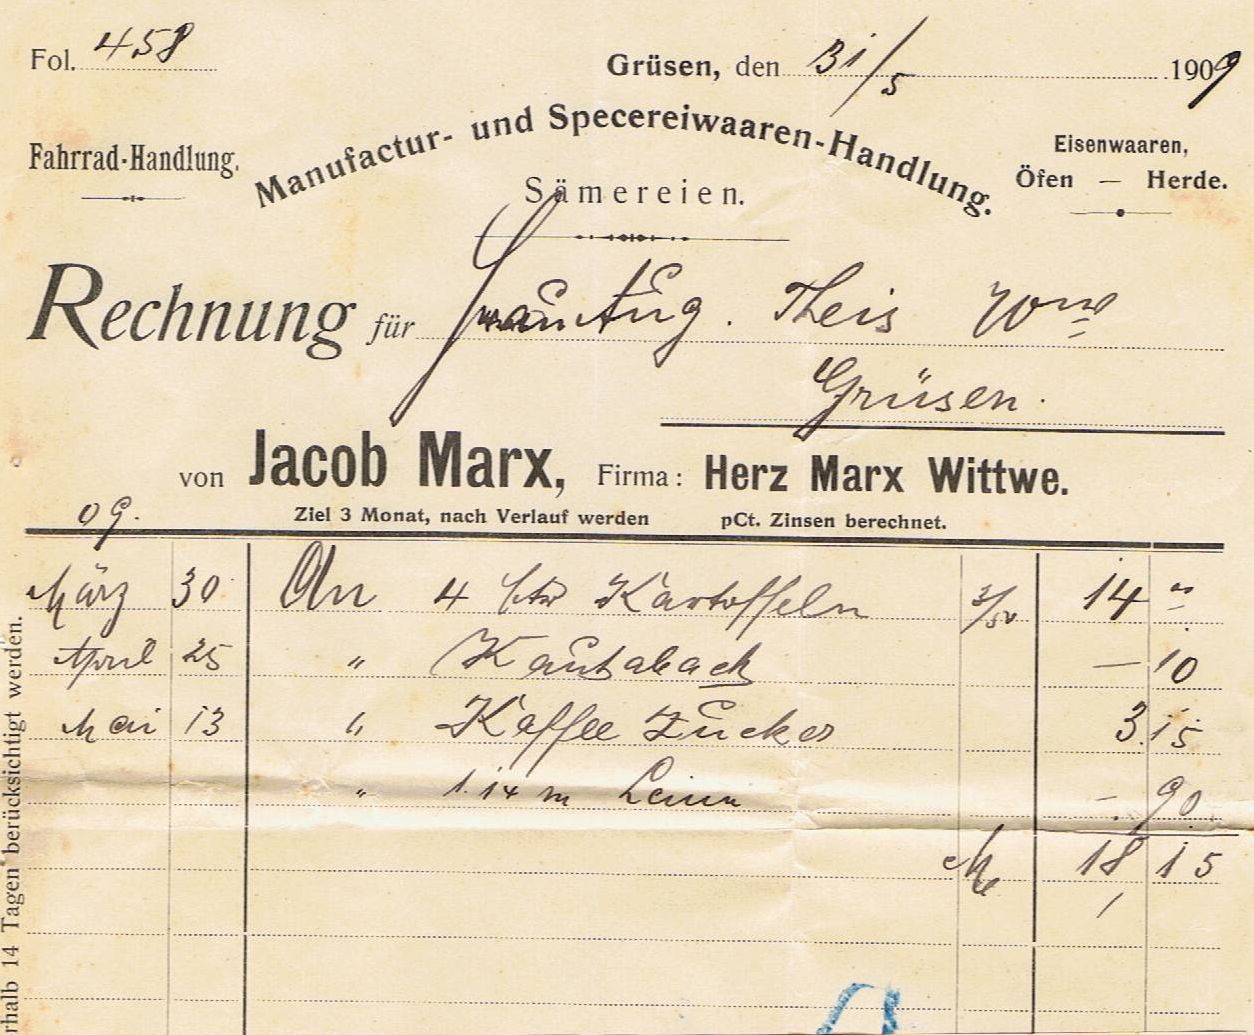 Fol. 458
Grüsen, den 31/5 1909
Fahrrad-Handlung.
Manufactur- und Specereiwaaren-Handlung.
Sämereien.
Eisenwaaren,
Öfen — Herde.
Rechnung für Frau Aug. Theis Wwe
Grüsen.
von Jacob Marx, Firma: Herz Marx Wittwe.
09.
Ziel 3 Monat, nach Verlauf werden pCt. Zinsen berechnet.
März 30 An 4 Ctr Kartoffeln 3/50 14 "
April 25 " Kautaback — 10
Mai 13 " Kaffee Zucker 3.15
" 1.14 m Leinn —. 90
M 18 15
rhalb 14 Tagen berücksichtigt werden.